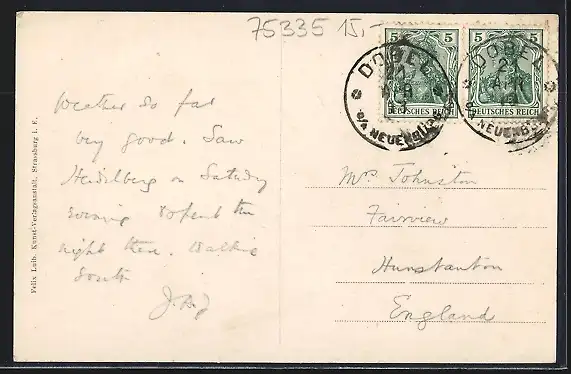 75335 15,-
5 5
DEUTSCHES REICH DEUTSCHES REICH
DOBEL
21
APR
DOBEL
21
APR
Weather so far
very good. Saw
Heidelberg on Saturday
evening & spent the
night there. Walking
South
J.A.J
Mrs Johnston
Fairview
Hunstanton
England
Felix Luib. Kunst-Verlagsanstalt. Strassburg i. E.